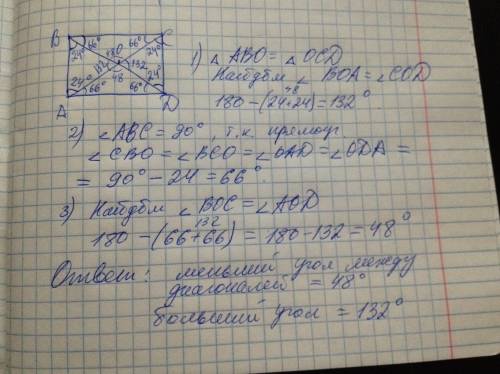 B 66° 180 66° C
24° 24°
132 132
24° 48 24°
66° 66°
A D
1) △ ABO = △ OCD
Найдём ∠ BOA = ∠COD
48
180 - (24+24) = 132°
2) ∠ABC = 90°, т.к. прямоуг.
∠CBO = ∠BCO = ∠OAD = ∠ODA =
= 90° - 24 = 66°.
3) Найдём ∠ BOC = ∠AOD
132
180 - (66+66) = 180-132 = 48°
Ответ: меньший угол между
диагоналей = 48°
больший угол = 132°